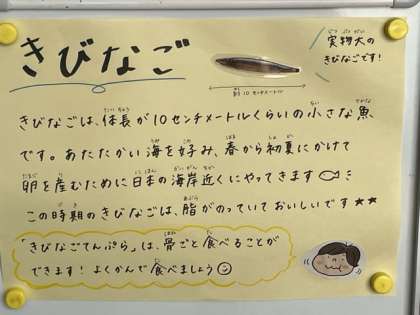 きびなご
実物大の
きびなごです!
約10センチメートル
きびなごは、体長が10センチメートルくらいの小さな魚
です。あたたかい海を好み、春から初夏にかけて
卵を産むために日本の海岸近くにやってきます
この時期のきびなごは、脂がのっていておいしいです★★
「きびなごてんぷら」は、骨ごと食べることが
できます!よくかんで食べましょう